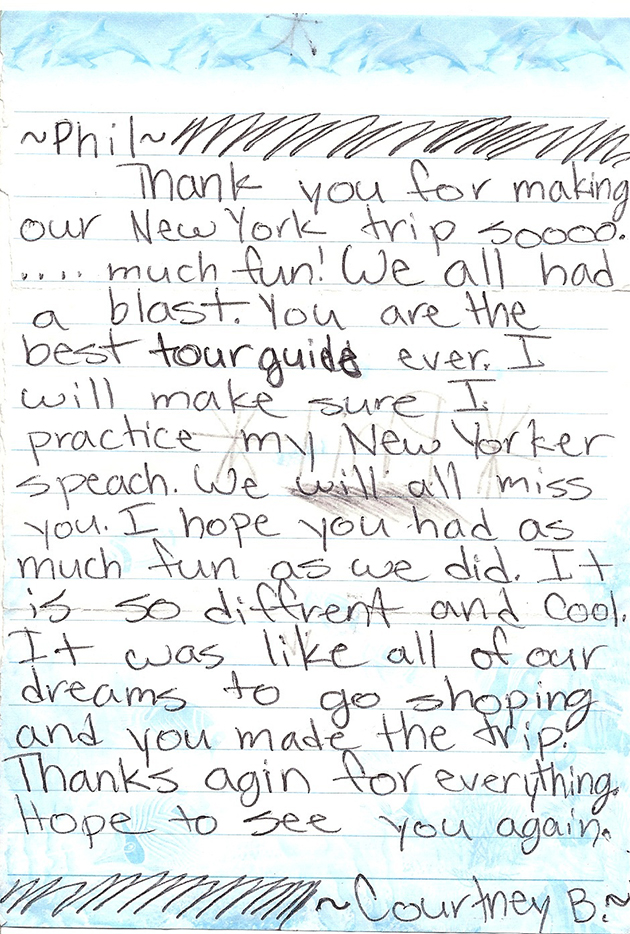 ~Phil~
Thank you for making
our New York trip soooo.
.... much fun! We all had
a blast. You are the
best tour guide ever. I
will make sure I
practice my New Yorker
speach. We will all miss
you. I hope you had as
much fun as we did. It
is so diffrent and cool.
It was like all of our
dreams to go shoping
and you made the trip.
Thanks agin for everything.
Hope to see you again.
~Courtney B.~